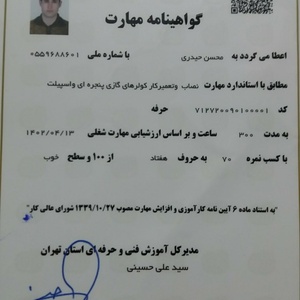 گواهینامه مهارت
اعطا می گردد به محسن حیدری با شماره ملی ۰۵۵۹۶۸۸۶۰۱
مطابق با استاندارد مهارت نصاب وتعمیرکار کولرهای گازی پنجره ای واسپیلت
کد ۷۱۲۷۲۰۰۹۰۱۰۰۰۰۱ حرفه
به مدت ۳۰۰ ساعت و بر اساس ارزشیابی مهارت شغلی ۱۴۰۲/۰۴/۱۳
با کسب نمره ۷۰ به حروف هفتاد از ۱۰۰ و سطح خوب
"به استناد ماده ۶ آیین نامه کارآموزی و افزایش مهارت مصوب ۱۳۳۹/۱۰/۲۷ شورای عالی کار"
مدیرکل آموزش فنی و حرفه ای استان تهران
سید علی حسینی